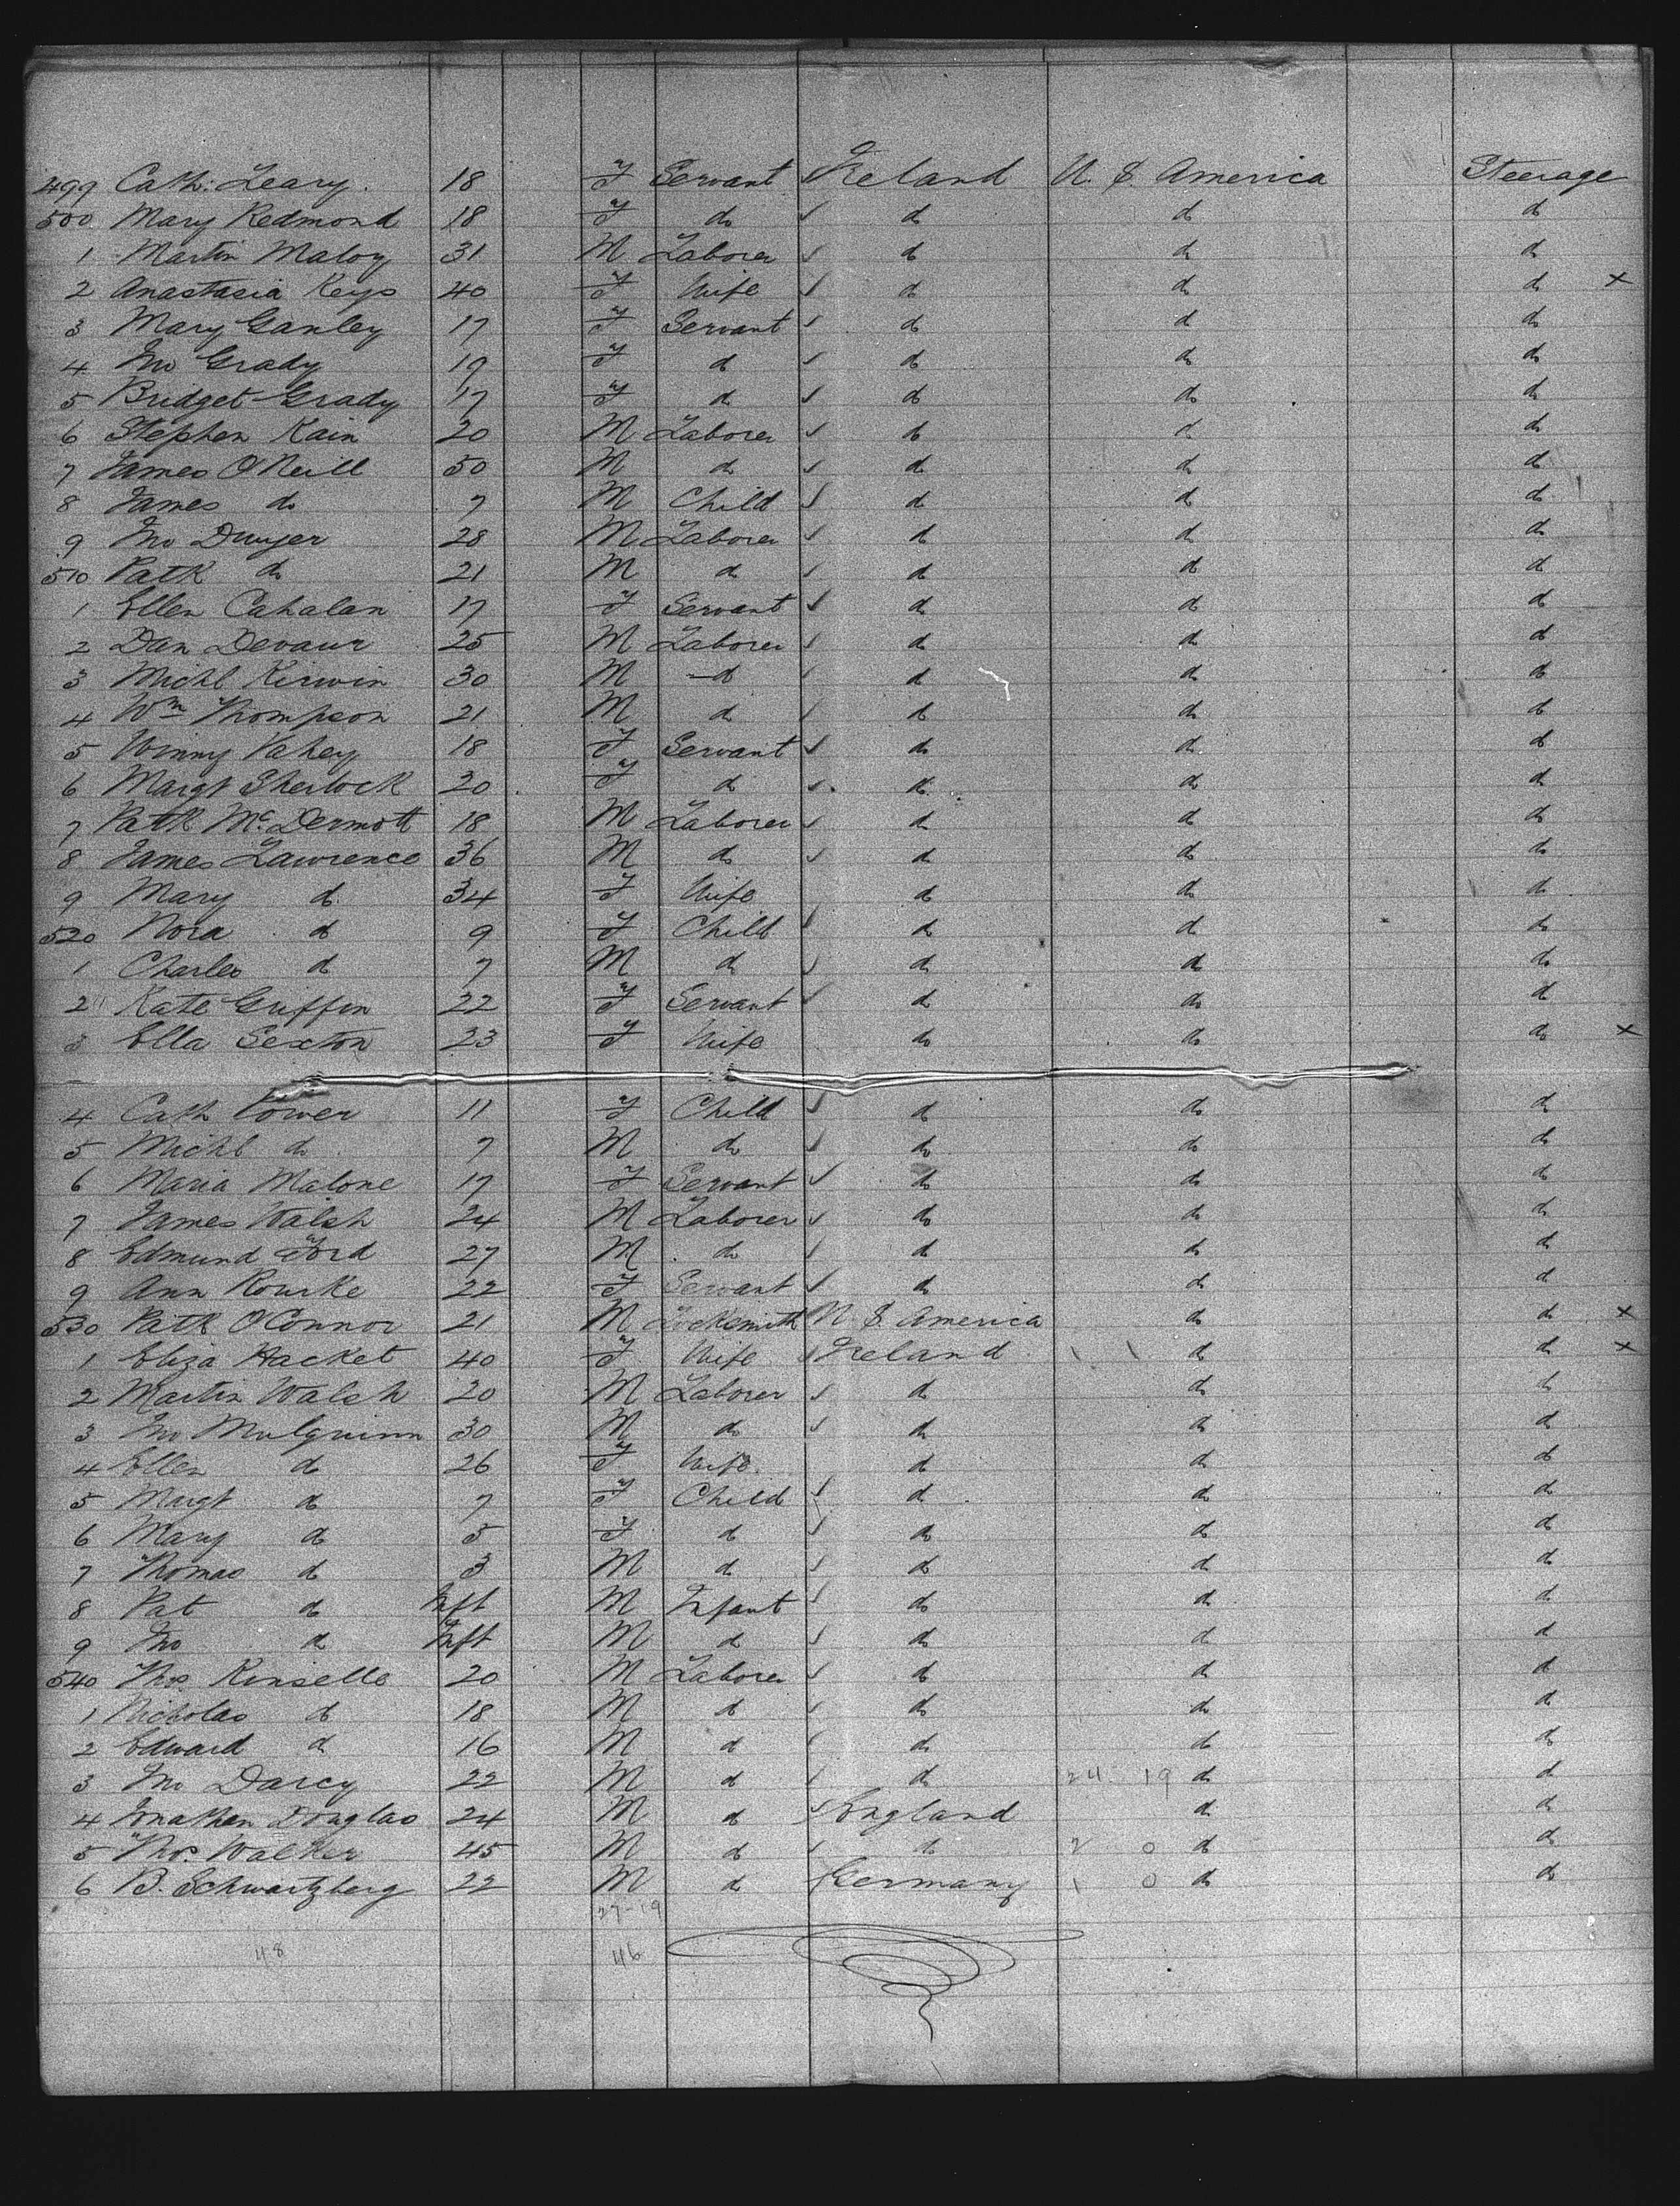 499 Cath: Leary 18 F Servant Ireland U. S. America Steerage
500 Mary Redmond 18 F do do do do
1 Martin Maloy 31 M Laborer do do do
2 Anastasia Keys 40 F Wife do do do x
3 Mary Ganley 17 F Servant do do do
4 Jno Grady 19 F do do do do
5 Bridget Grady 17 F do do do do
6 Stephen Kain 20 M Laborer do do do
7 James O'Neill 50 M do do do do
8 James do 7 M Child do do do
9 Jno Dwyer 28 M Laborer do do do
510 Patk do 21 M do do do do
1 Ellen Cahalan 17 F Servant do do do
2 Dan Devaur 25 M Laborer do do do
3 Michl Kirwin 30 M do do do do
4 Wm Thompson 21 M do do do do
5 Winny Fahey 18 F Servant do do do
6 Margt Sherlock 20 F do do do do
7 Patk McDermott 18 M Laborer do do do
8 James Lawrence 36 M do do do do
9 Mary do 34 F Wife do do do
520 Nora do 9 F Child do do do
1 Charles do 7 M do do do do
2 Kate Griffin 22 F Servant do do do
3 Ella Sexton 23 F Wife do do do x
4 Cath Power 11 F Child do do do
5 Michl do 7 M do do do do
6 Maria Malone 17 F Servant do do do
7 James Walsh 24 M Laborer do do do
8 Edmund Ford 27 M do do do do
9 Ann Rourke 22 F Servant do do do
530 Patk O'Connor 21 M Locksmith U. S. America do do x
1 Eliza Hacket 40 F Wife Ireland do do x
2 Martin Walsh 20 M Laborer do do do
3 Jno Mulquinn 30 M do do do do
4 Ellen do 26 F Wife do do do
5 Margt do 7 F Child do do do
6 Mary do 5 F do do do do
7 Thomas do 3 M do do do do
8 Pat do Inft M Infant do do do
9 Jno do Inft M do do do do
540 Thos Kinselle 20 M Laborer do do do
1 Nicholas do 18 M do do do do
2 Edward do 16 M do do do do
3 Jno Darcy 22 M do do 24 19 do do
4 Jonathan Douglas 24 M do England do do
5 Thos. Walker 45 M do do 2 0 do do
6 B. Schwartzberg 22 M do Germany 1 0 do do
27-19
48 46